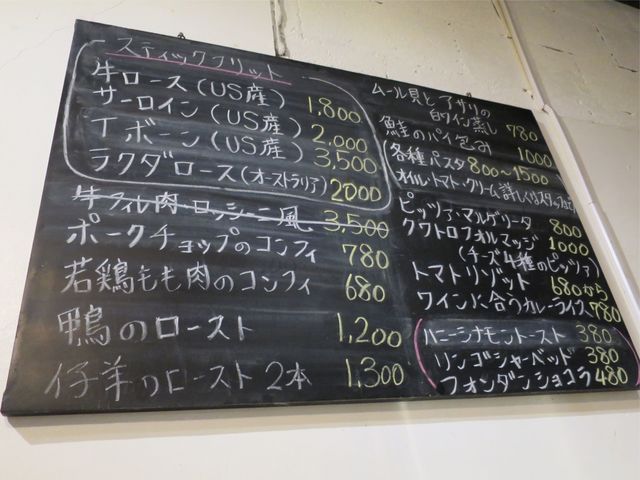 スティックフリット
牛ロース(US産) 1,800
サーロイン(US産) 2,000
Tボーン(US産) 3,500
ラクダロース(オーストラリア) 2000
牛フィレ肉・ロッシーニ風 3,500
ポークチョップのコンフィ 780
若鶏もも肉のコンフィ 680
鴨のロースト 1,200
仔羊のロースト2本 1,300
ムール貝とアサリの
白ワイン蒸し 780
鮭のパイ包み 1000
各種パスタ 800~1500
オイル・トマト・クリーム 詳しくはスタッフまで
ピッツァ・マルゲリータ 800
クワトロフォルマッジ 1000
(チーズ4種のピッツァ)
トマトリゾット 680から
ワインに合うカレーライス 780
ハニーシナモントースト 380
リンゴシャーベット 380
フォンダンショコラ 480